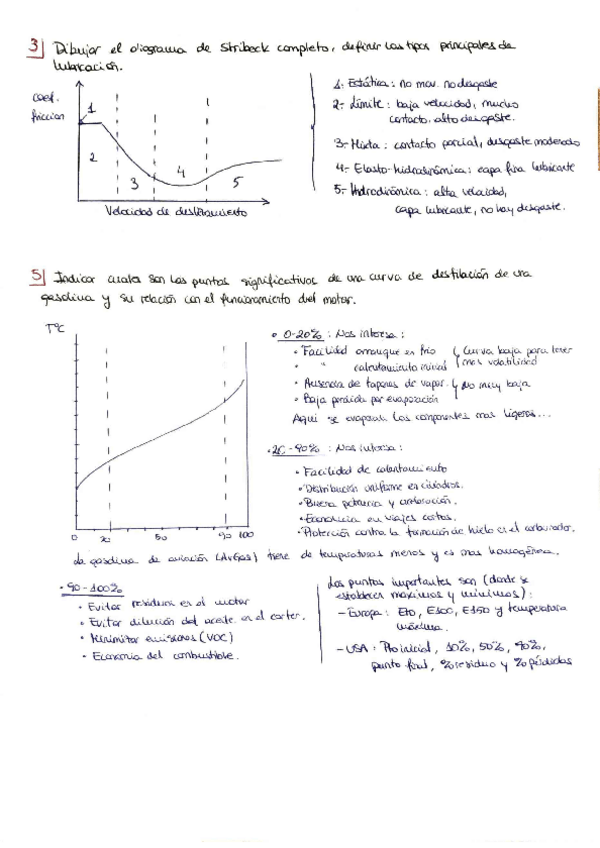 3 Dibujar el diagrama de Stribeck completo, definir los tipos principales de
lubricación.
coef.
friccion
1
2
3
4
5
Velocidad de deslizamiento
1.- Estática: no mov. no desgaste
2.- Límite: baja velocidad, mucho
contacto, alto desgaste.
3.- Mixta: contacto parcial, desgaste moderado
4.- Elasto-hidrodinámica: capa fina lubricante
5.- Hidrodinámica: alta velocidad,
capa lubricante, no hay desgaste.
5 Indicar cuales son los puntos significativos de una curva de destilación de una
gasolina y su relación con el funcionamiento del motor.
TºC
0 20 50 90 100
• 0-20% : Nos interesa:
• Facilidad arranque en frío
• " calentamiento inicial
Curva baja para tener
mas volatilidad
• Ausencia de tapones de vapor.
• Baja perdida por evaporación
No muy baja
Aqui se evaporan los componentes mas ligeros...
• 20-90% : Nos interesa:
• Facilidad de calentamiento
• Distribución uniforme en cilindros.
• Buena potencia y aceleración.
• Economia en viajes cortos.
• Protección contra la formación de hielo en el carburador.
La gasolina de aviación (AvGas) tiene de temperaturas menos y es mas homogénea.
• 90-100%
• Evitar residuos en el motor
• Evitar dilución del aceite en el carter.
• Minimizar emisiones (VOC)
• Economía del combustible.
Los puntos importantes son (donde se
establecen maximos y minimos):
- Europa: E70, E100, E150 y temperatura
máxima.
- USA: Pto inicial, 10%, 50%, 90%,
punto final, % residuo y % pérdidas